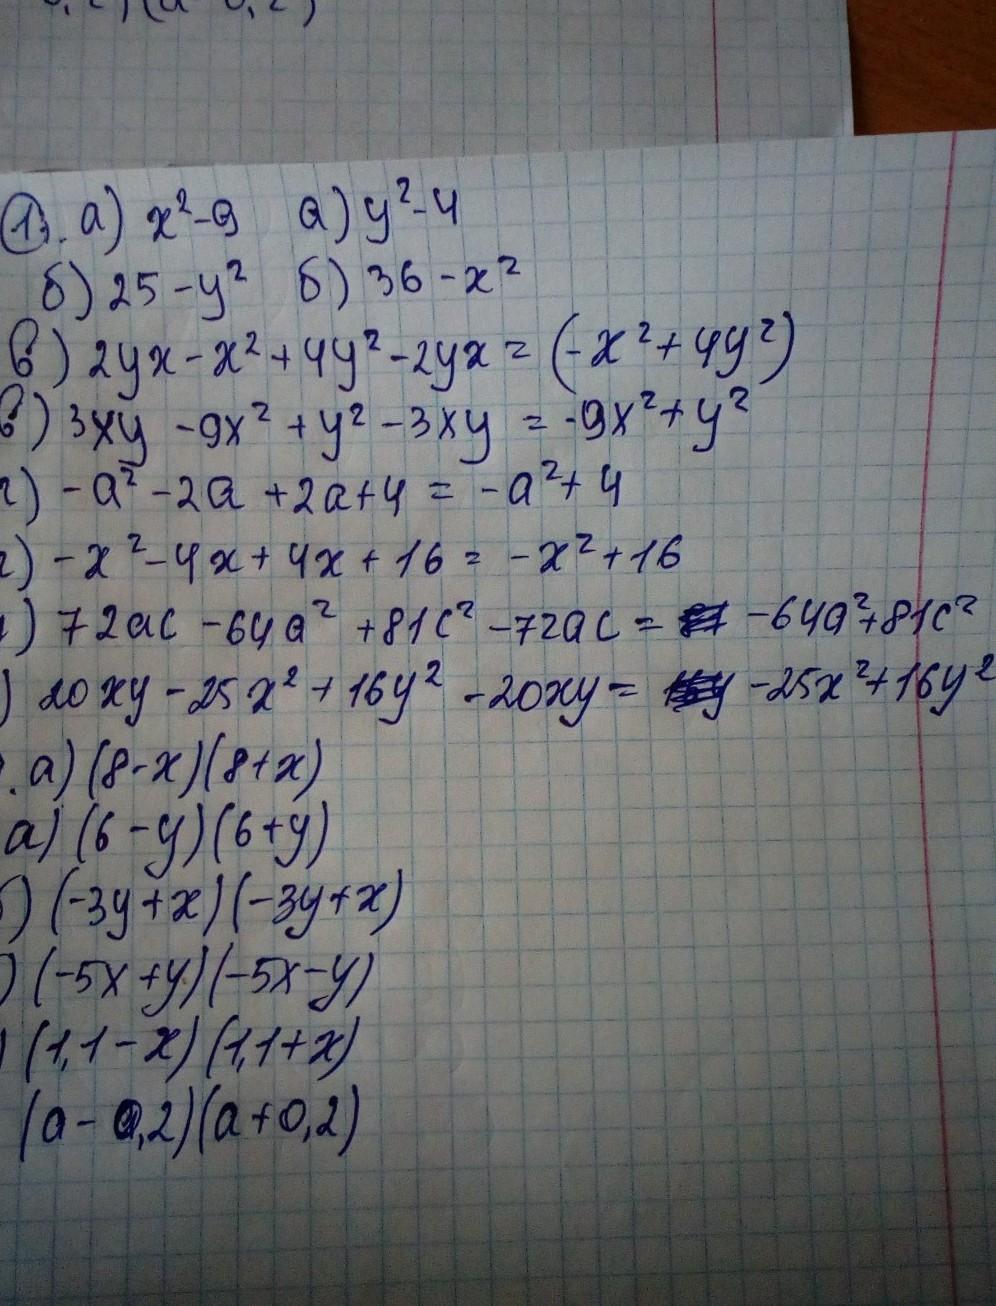 1). а) x²-9 а) y²-4
б) 25-y² б) 36-x²
в) 2yx-x²+4y²-2yx=(-x²+4y²)
в) 3xy-9x²+y²-3xy=-9x²+y²
г) -a²-2a+2a+4=-a²+4
г) -x²-4x+4x+16=-x²+16
) 72ac-64a²+81c²-72ac= -64a²+81c²
) 20xy-25x²+16y²-20xy= -25x²+16y²
. а) (8-x)(8+x)
а) (6-y)(6+y)
б) (-3y+x)(-3y+x)
) (-5x+y)(-5x-y)
) (1,1-x)(1,1+x)
(a-0,2)(a+0,2)